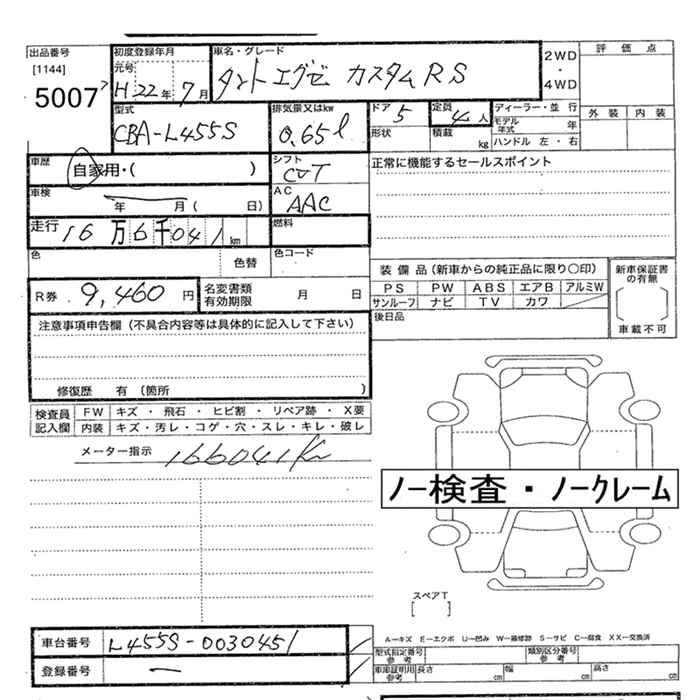 出品番号
[1144]
5007
初度登録年月
元号
H22年7月
車名・グレード
タントエグゼ カスタムRS
2WD
・
4WD
評価点
外装 内装
型式
CBA-L455S
排気量又はkw
0.65l
ドア
5
形状
定員
4人
積載
kg
ディーラー・並行
モデル年式 年
ハンドル 左・右
車歴
自家用・( )
シフト
CVT
正常に機能するセールスポイント
車検
年 月( 日)
AC
AAC
走行 16万6千041km
燃料
色
色替
色コード
R券 9,460円
名変書類
有効期限 月 日
装備品(新車からの純正品に限り〇印)
PS PW ABS エアB アルミW
サンルーフ ナビ TV カワ
後日品
新車保証書
の有無
車載不可
注意事項申告欄(不具合内容等は具体的に記入して下さい)
修復歴 有(箇所 )
検査員 FW キズ・飛石・ヒビ割・リペア跡・X要
記入欄 内装 キズ・汚レ・コゲ・穴・スレ・キレ・破レ
メーター指示 166041Km
ノー検査・ノークレーム
スペアT
[ ]
車台番号 L455S-0030451
登録番号 ー
A-キズ E-エクボ U-凹み W-補修跡 S-サビ C-腐食 XX-交換済
型式指定番号
参考
類別区分番号
参考
車庫証明用
参考
長さ cm 幅 cm 高さ cm